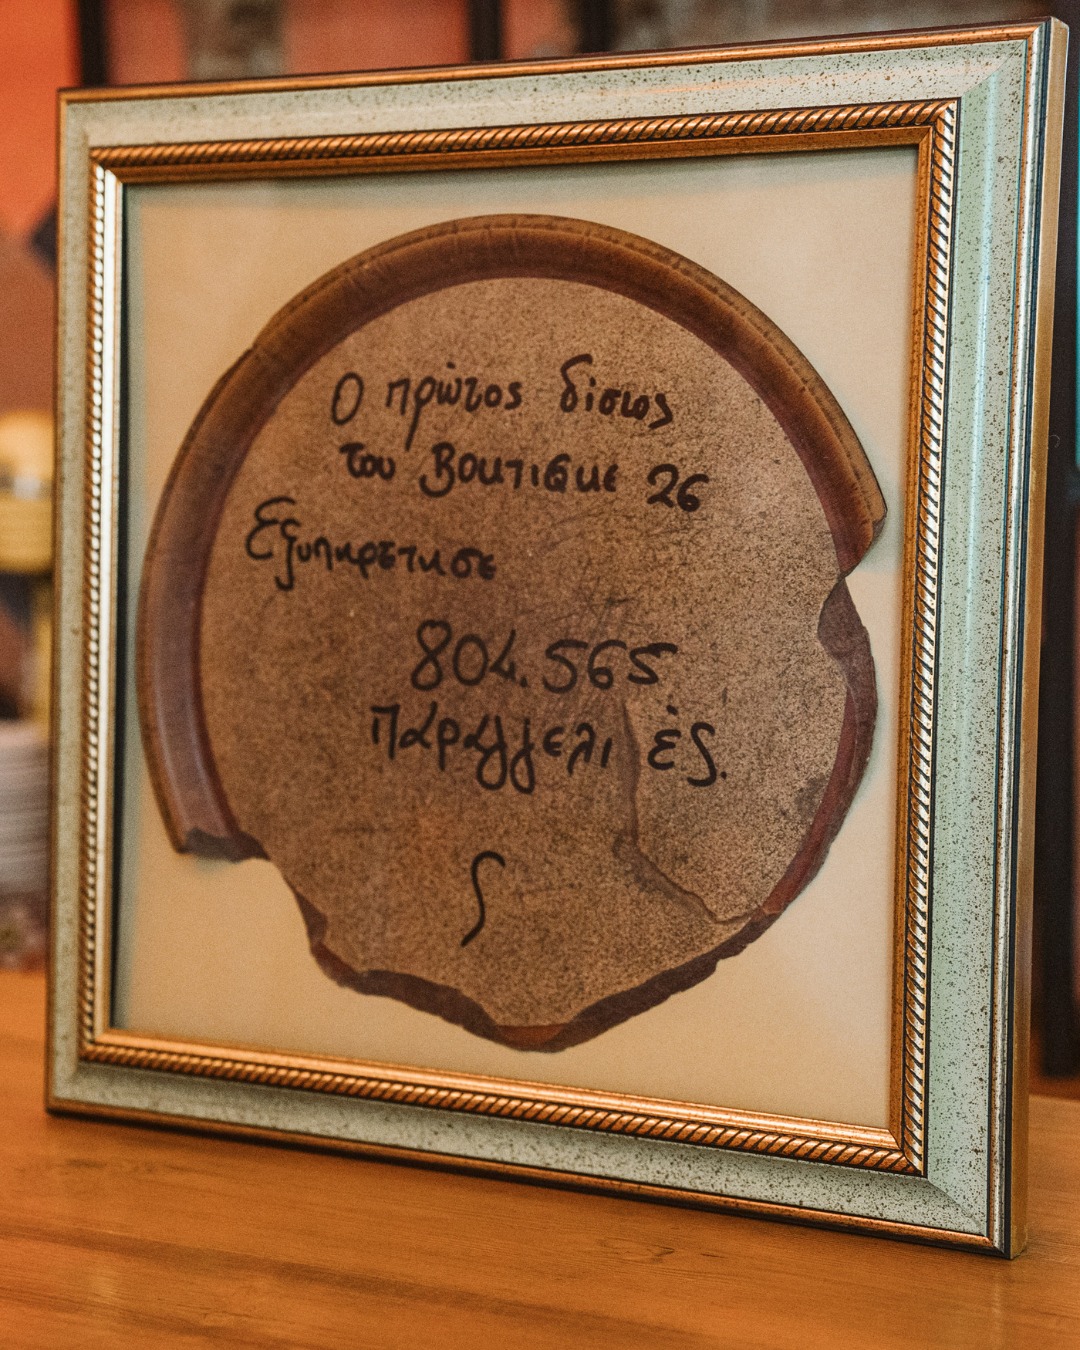 Ο πρώτος δίσκος
του Βουτιque 26
Εξυπηρέτησε
804.565
Παραγγελι ές.